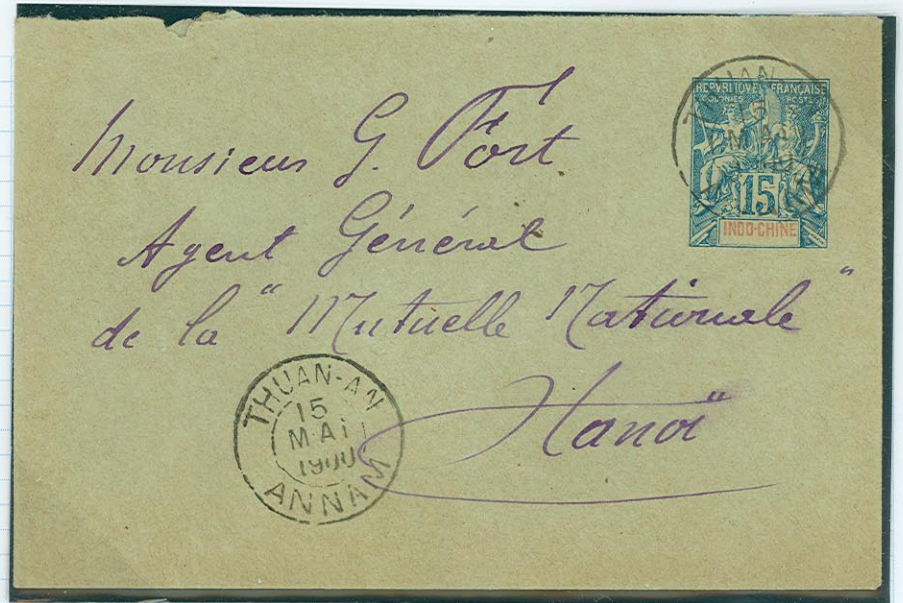 REPVBLIQVE FRANÇAISE
COLONIES POSTES
15
INDO-CHINE
THUAN-AN
15
MAI
Monsieur G. Fort
Agent Général
de la "Mutuelle Nationale"
Hanoï
THUAN-AN
15
MAI
1900
ANNAM